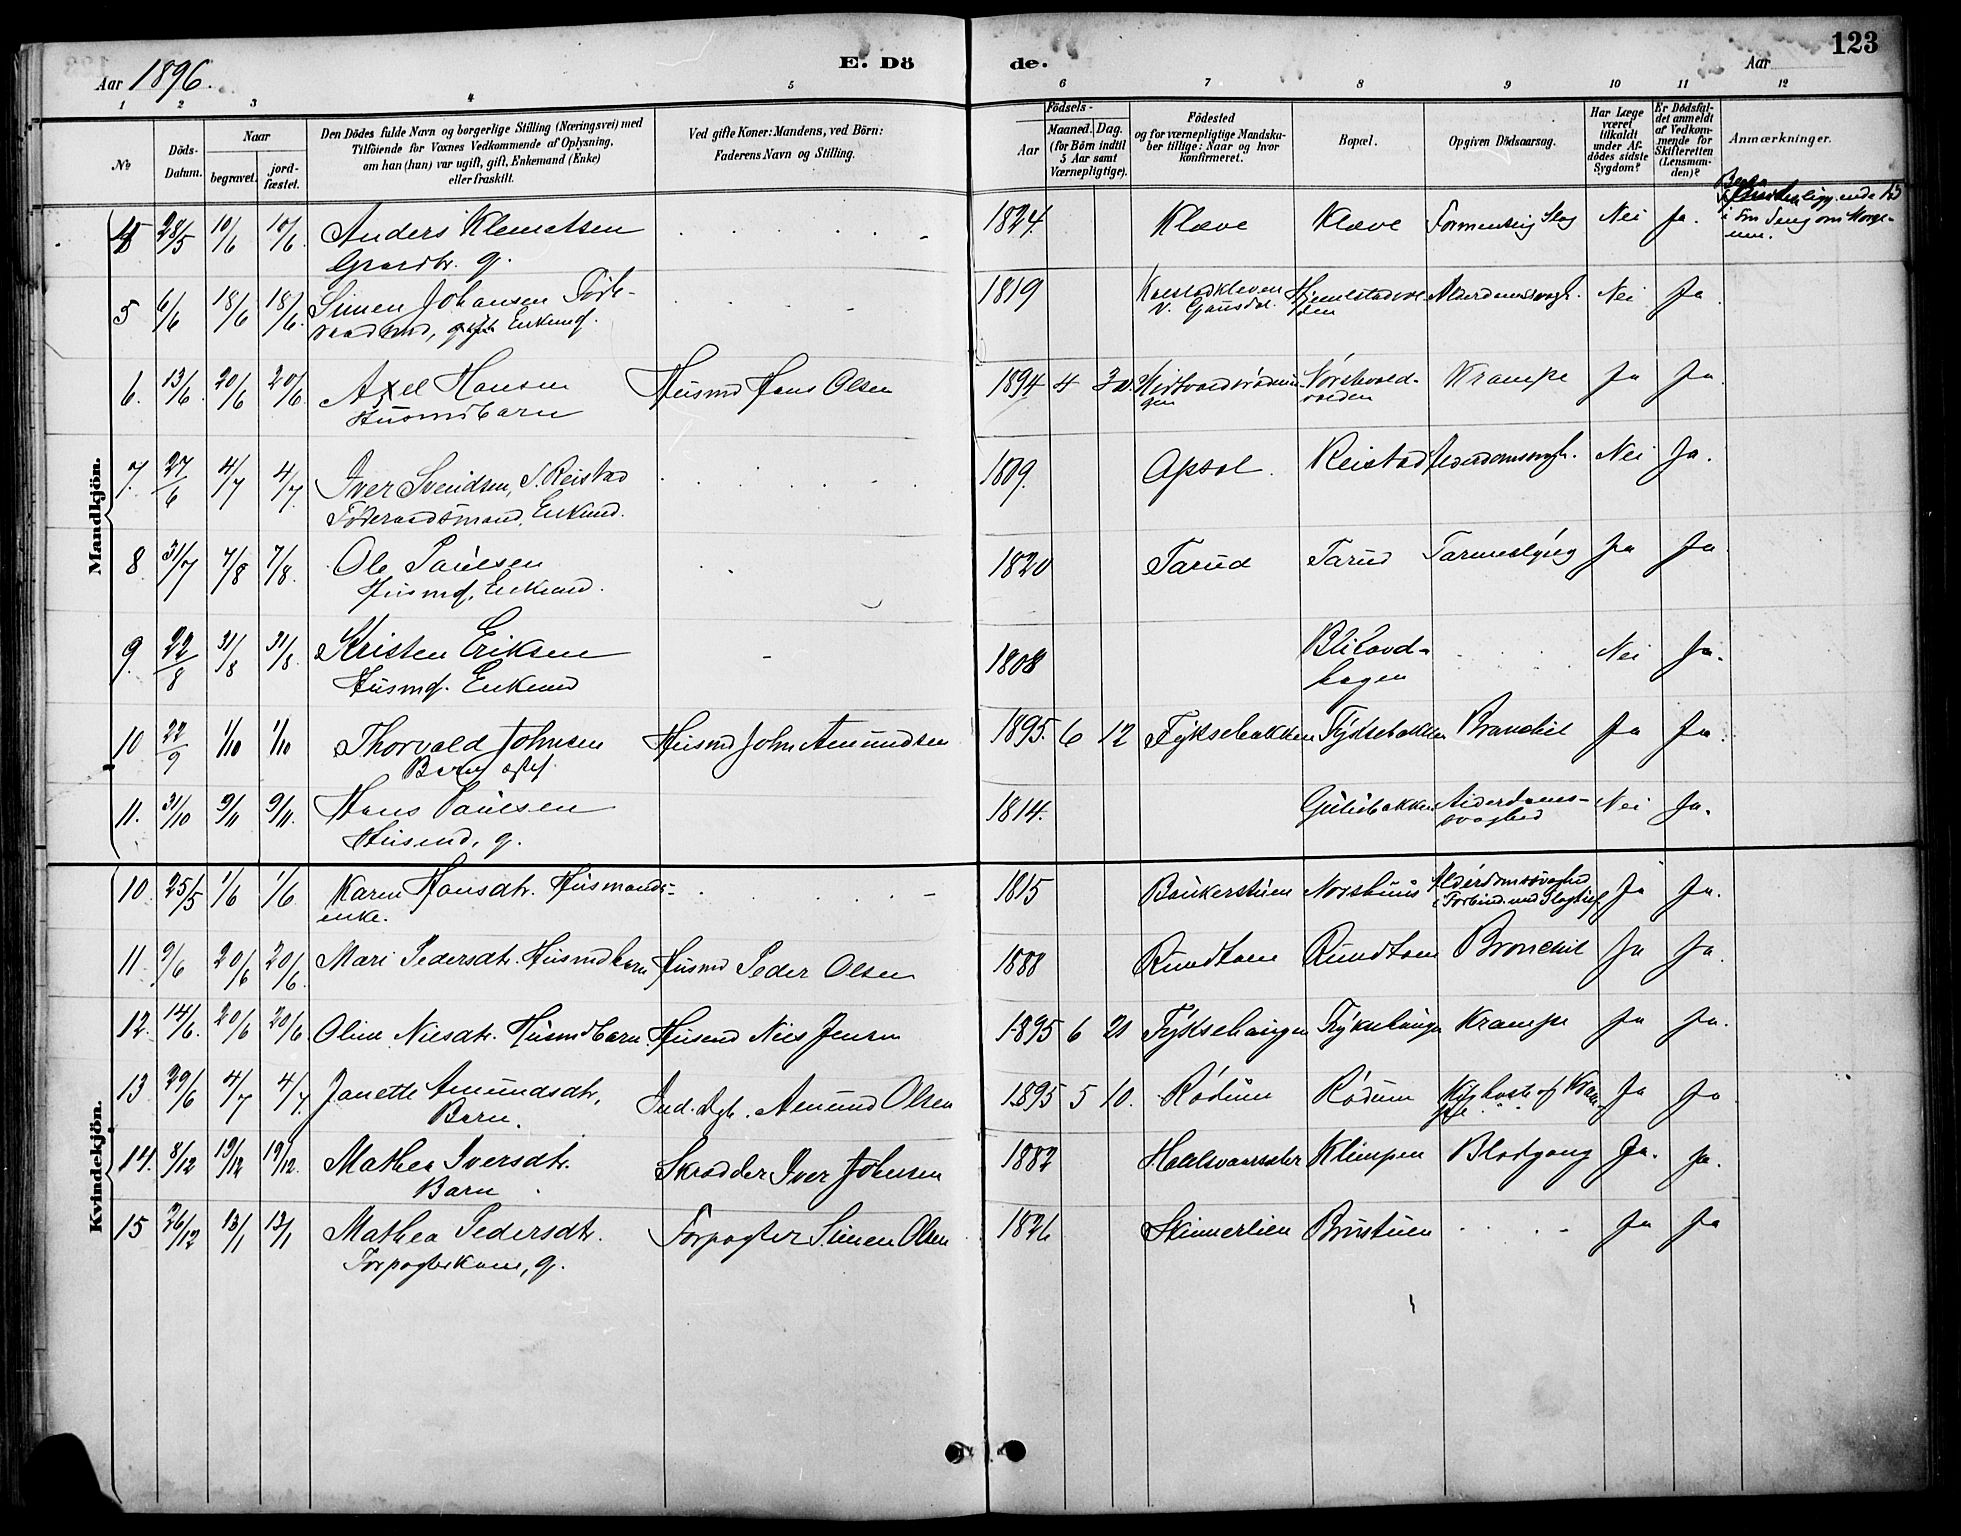 123
Aar 1896.
E. Dö
de.
Aar
1 2 3 4 5 6 7 8 9 10 11 12
No
Döds-Datum.
Naar
begravet.
jord-fæstet.
Den Dödes fulde Navn og borgerlige Stilling (Næringsvei) med
Tilföiende for Voxnes Vedkommende af Oplysning,
om han (hun) var ugift, gift, Enkemand (Enke)
eller fraskilt.
Ved gifte Koner: Mandens, ved Börn:
Faderens Navn og Stilling.
Födsels-
Aar
Maaned. Dag.
(for Börn indtil
5 Aar samt
Værnepligtige).
Födested
og for værnepligtige Mandska-
ber tillige: Naar og hvor
konfirmeret.
Bopæl.
Opgiven Dödsaarsag.
Har Læge
været
tilkaldt
under Af-
dödes sidste
Sygdom?
Er Dödsfal-
det anmeldt
af Vedkom-
mende for
Skifteretten
(Lensman-
den)?
Anmærkninger.
Mandkjön.
28/5 10/6 10/6 Anders Klemetsen 1824. Klæve Klæve Formentlig Slag Nei Ja.
Gaardbr. g.
liggende
i Sin Seng om Morge-
nen.
5 6/6 18/6 18/6 Simen Johansen 1819 Nei Ja
Enkemd.
V. Gausdal.
6. 13/6. 20/6 20/6 Axel Hansen Husmd Hans Olsen 1894 4 Krampe Ja Ja
Husmdbarn
7. 27/6 4/7 4/7. Iver Svendsen, S. Reistad 1809. Opsal. Reistad Alderdomssvagh. Nei Ja.
Föderaadsmand, Enkemd.
8. 31/7 7/8 7/8. Ole Paulsen 1820 Tarud Tarud Tarmeslyng Ja Ja
Husmd. Enkemd.
9. 22/8 31/8 31/8. Kristen Eriksen 1808 Nei Ja.
Husmd. Enkemd
10 22/9 1/10 1/10 Thorvald Johnsen Husmd John Amundsen 1895. 6 12 Fyksebakken Fyksebakken Bronchit Ja Ja.
Barn
11. 31/10 9/11 9/11. Hans Paulsen 1814. Gulibakken Alderdoms-
svaghed Nei Ja.
Husmd, g.
Kvindekjön.
10. 25/5 1/6 1/6. Karen Hansdtr. Husmands- 1815 Norshuus Alderdomssvaghed Ja Ja.
enke.
11. 9/6 20/6 20/6 Mari Pedersdtr. Husmdbarn Husmd Peder Olsen 1888 Rundtom Rundtom Bronchit Ja Ja.
12. 14/6. 20/6 20/6 Oline Nilsdtr. Husmdbarn. Husmd Nils Jensen 1895 6 21 Fyksehaugen Fyksehaugen Krampe Ja Ja.
13 29/6 4/7 4/7. Janette Amundsdtr, Amund Olsen 1895 5 10. Rödum Rödum Kighoste og Kram-
pe Ja Ja
Barn.
14. 8/12 19/12 19/12. Mathea Iversdtr. Skrædder Iver Johnsen 1882 Klimpen Blodgang Ja. Ja.
Barn
15 26/12 13/1 13/1 Mathea Pedersdtr. Forpagter Simen Olsen 1826 Skinnerlien Brustuen Ja Ja
Forpagterkone, g.